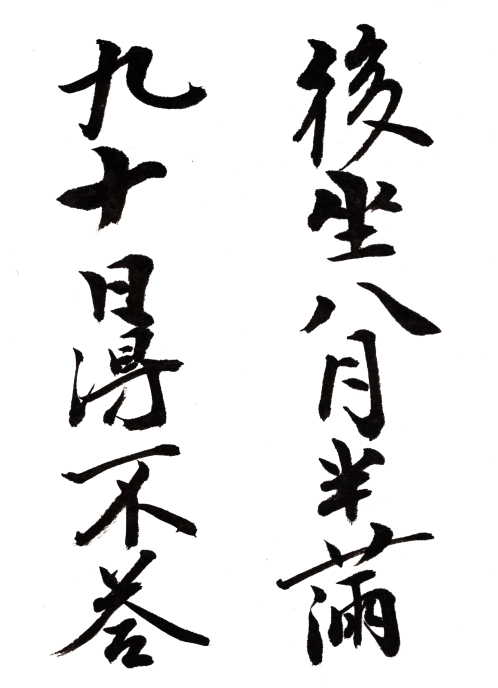 後坐八月半滿
九十日得不答